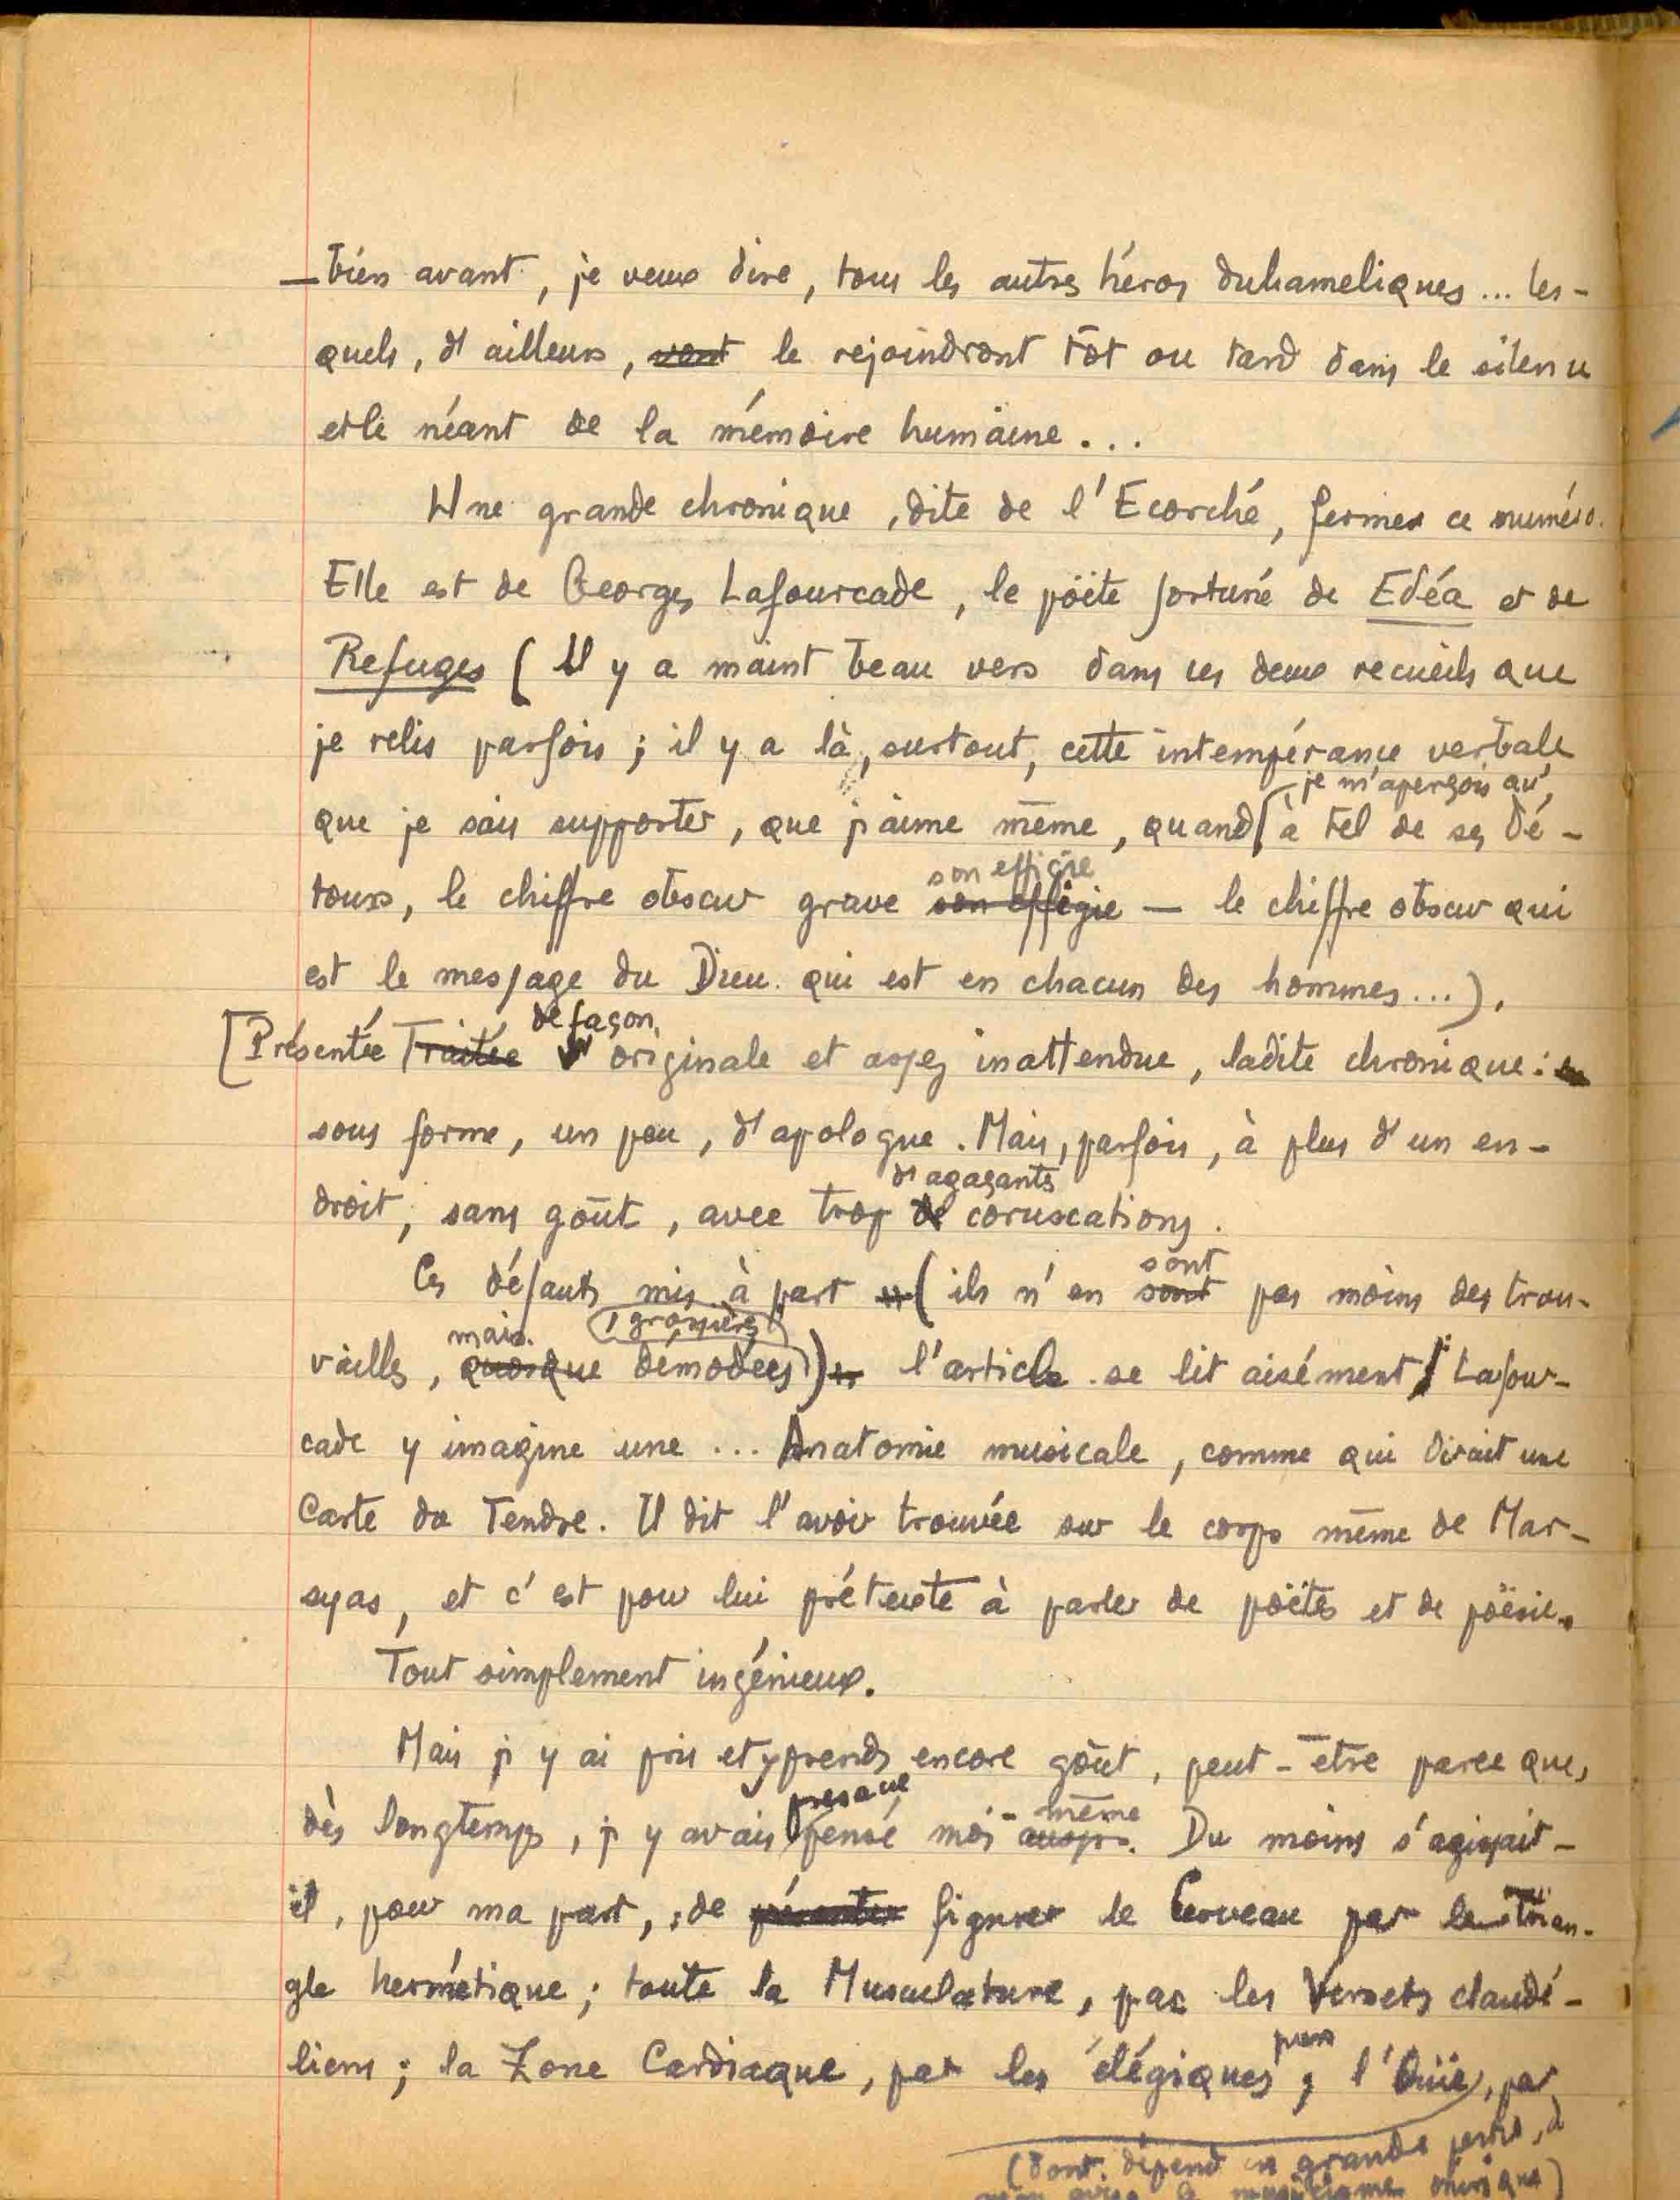 — bien avant, je veux dire, tous les autres héros duhameliques... les-
quels, d'ailleurs, vont le rejoindront tôt ou tard dans le silence
et le néant de la mémoire humaine...
Une grande chronique, dite de l'Ecorché, ferme ce numéro.
Elle est de Georges Lafourcade, le poëte fortuné de Edéa et de
Refuges (Il y a maint beau vers dans ces deux recueils que
je relis parfois ; il y a là, surtout, cette intempérance verbale
je m'aperçois qu'
que je sais supporter, que j'aime même, quand à tel de ses dé-
son effigie
tours, le chiffre obscur grave son effigie — le chiffre obscur qui
est le message du Dieu qui est en chacun des hommes...).
de façon
[Présentée Traitée originale et assez inattendue, ladite chronique :
sous forme, un peu, d'apologue. Mais, parfois, à plus d'un en-
d'agaçants
droit, sans goût, avec trop de coruscations.
sont
Ces défauts mis à part (ils n'en sont pas moins des trou-
mais grossières
vailles, quoique démodées) l'article se lit aisément ; Lafour-
cade y imagine une ... Anatomie musicale, comme qui dirait une
Carte du Tendre. Il dit l'avoir trouvée sur le corps même de Mar-
syas, et c'est pour lui prétexte à parler de poëtes et de poësie.
Tout simplement ingénieux.
Mais j'y ai pris et y prends encore goût, peut-être parce que,
presque même
dès longtemps, j'y avais pensé moi- aussi. Du moins s'agissait-
il, pour ma part, de figurer le Cerveau par le Trian-
gle hermétique ; toute la Musculature, par les Versets claudé-
purs
liens ; la Zone Cardiaque, par les élégiques ; l'Ouïe, par
(dont dépend en grande partie, à
mon avis, le mysticisme onirique)